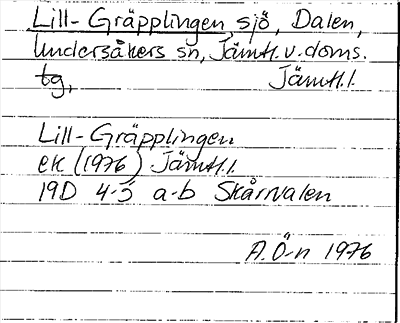 Lill-Gräpplingen, sjö, Dalen,
Undersåkers sn, Jämtl. v. doms.
tg, Jämtl. l.
Lill-Gräpplingen
ek (1976) Jämtl. l.
19D 4-5 a-b Skårvalen
A. Ö-n 1976